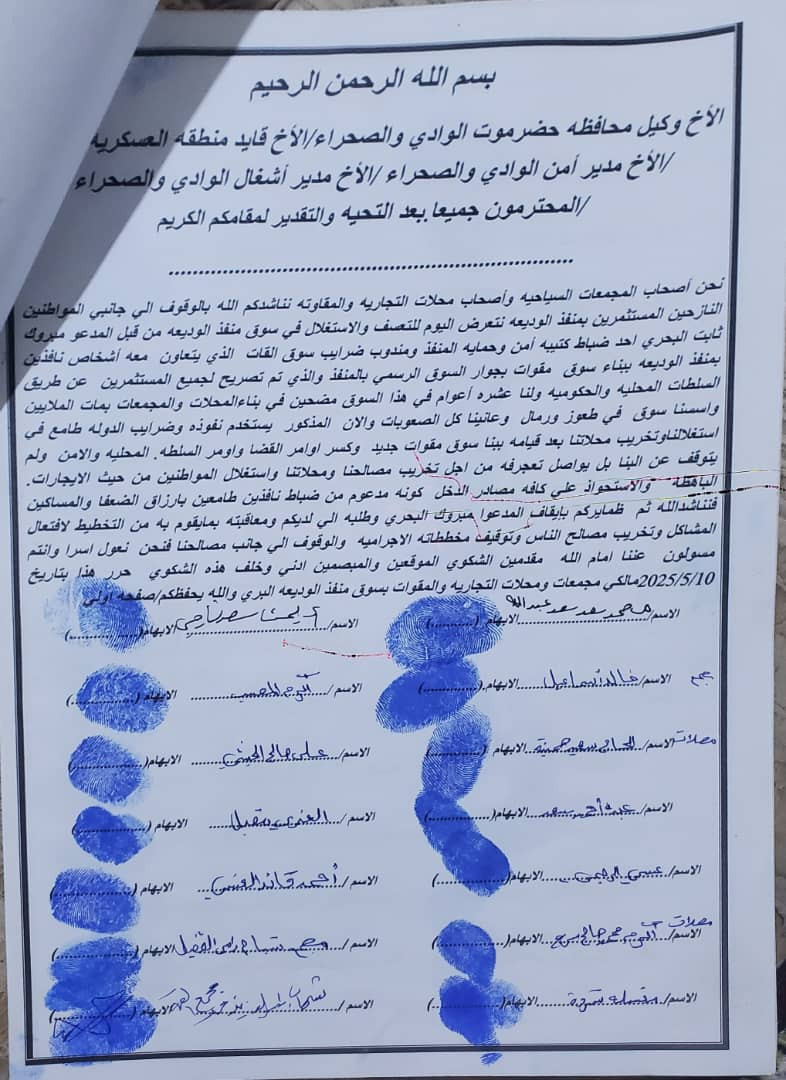 بسم الله الرحمن الرحيم
الأخ وكيل محافظه حضرموت الوادي والصحراء/الأخ قايد منطقه العسكرية
/الأخ مدير أمن الوادي والصحراء /الأخ مدير أشغال الوادي والصحراء
/المحترمون جميعا.بعد التحيه والتقدير لمقامكم الكريم
نحن أصحاب المجمعات السياحيه وأصحاب محلات التجاريه والمقاوته نناشدكم الله بالوقوف الي جانبي المواطنين
النازحين المستثمرين بمنفذ الوديعه نتعرض اليوم للتعصف والاستغلال في سوق منفذ الوديعه من قبل المدعو مبروك
ثابت البحري احد ضباط كتيبه أمن وحمايه المنفذ ومندوب ضرايب سوق القات الذي يتعاون معه أشخاص نافذين
بمنفذ الوديعه ببناء سوق مقوات بجوار السوق الرسمي بالمنفذ والذي تم تصريح لجميع المستثمرين عن طريق
السلطات المحليه والحكوميه ولنا عشره أعوام في هذا السوق مضحين في بناءالمحلات والمجمعات بمات الملايين
واسسنا سوق في طعوز ورمال وعانينا كل الصعوبات والان المذكور يستخدم نفوذه وضرايب الدوله طامع في
استغلالناوتخريب محلاتنا بعد قيامه ببنا سوق مقوات جديد وكسر اوامر القضا واومر السلطه. المحليه والامن ولم
يتوقف عن البنا بل يواصل تعجرفه من اجل تخريب مصالحنا ومحلاتنا واستغلال المواطنين من حيث الايجارات.
الباهظة والاستحواذ علي كافه مصادر الدخل كونه مدعوم من ضباط نافذين طامعين بارزاق الضعفا والمساكين
فنناشدالله ثم ظمايركم بإيقاف المدعوا مبروك البحري وطلبه الي لديكم ومعاقبته بمايقوم به من التخطيط لافتعال
المشاكل وتخريب مصالح الناس وتوقيف مخططاته الاجراميه والوقوف الي جانب مصالحنا فنحن نعول اسرا وانتم
مسولون عننا امام الله مقدمين الشكوي الموقعين والمبصمين ادني وخلف هذه الشكوي حرر هذا بتاريخ
2025/5/10مالكي مجمعات ومحلات التجاريه والمقوات بسوق منفذ الوديعه البري والله يحفظكم/صفحه اولي
الاسم/محمد سعد سعد عبدالله الابهام (..........) الاسم/ الابهام (..........)
الاسم/خالد اسماعيل الابهام (..........) الاسم/ الابهام (..........)
محلات الاسم/ الابهام (..........) الاسم/علي صالح الابهام (..........)
الاسم/عبده أحمد الابهام (..........) الاسم/ الابهام (..........)
الاسم/عيسى الابهام (..........) الاسم/أحمد قائد العنسي الابهام (..........)
محلات الاسم/ الابهام (..........) الاسم/ الابهام (..........)
الاسم/ الابهام (..........) الاسم/ الابهام (..........)